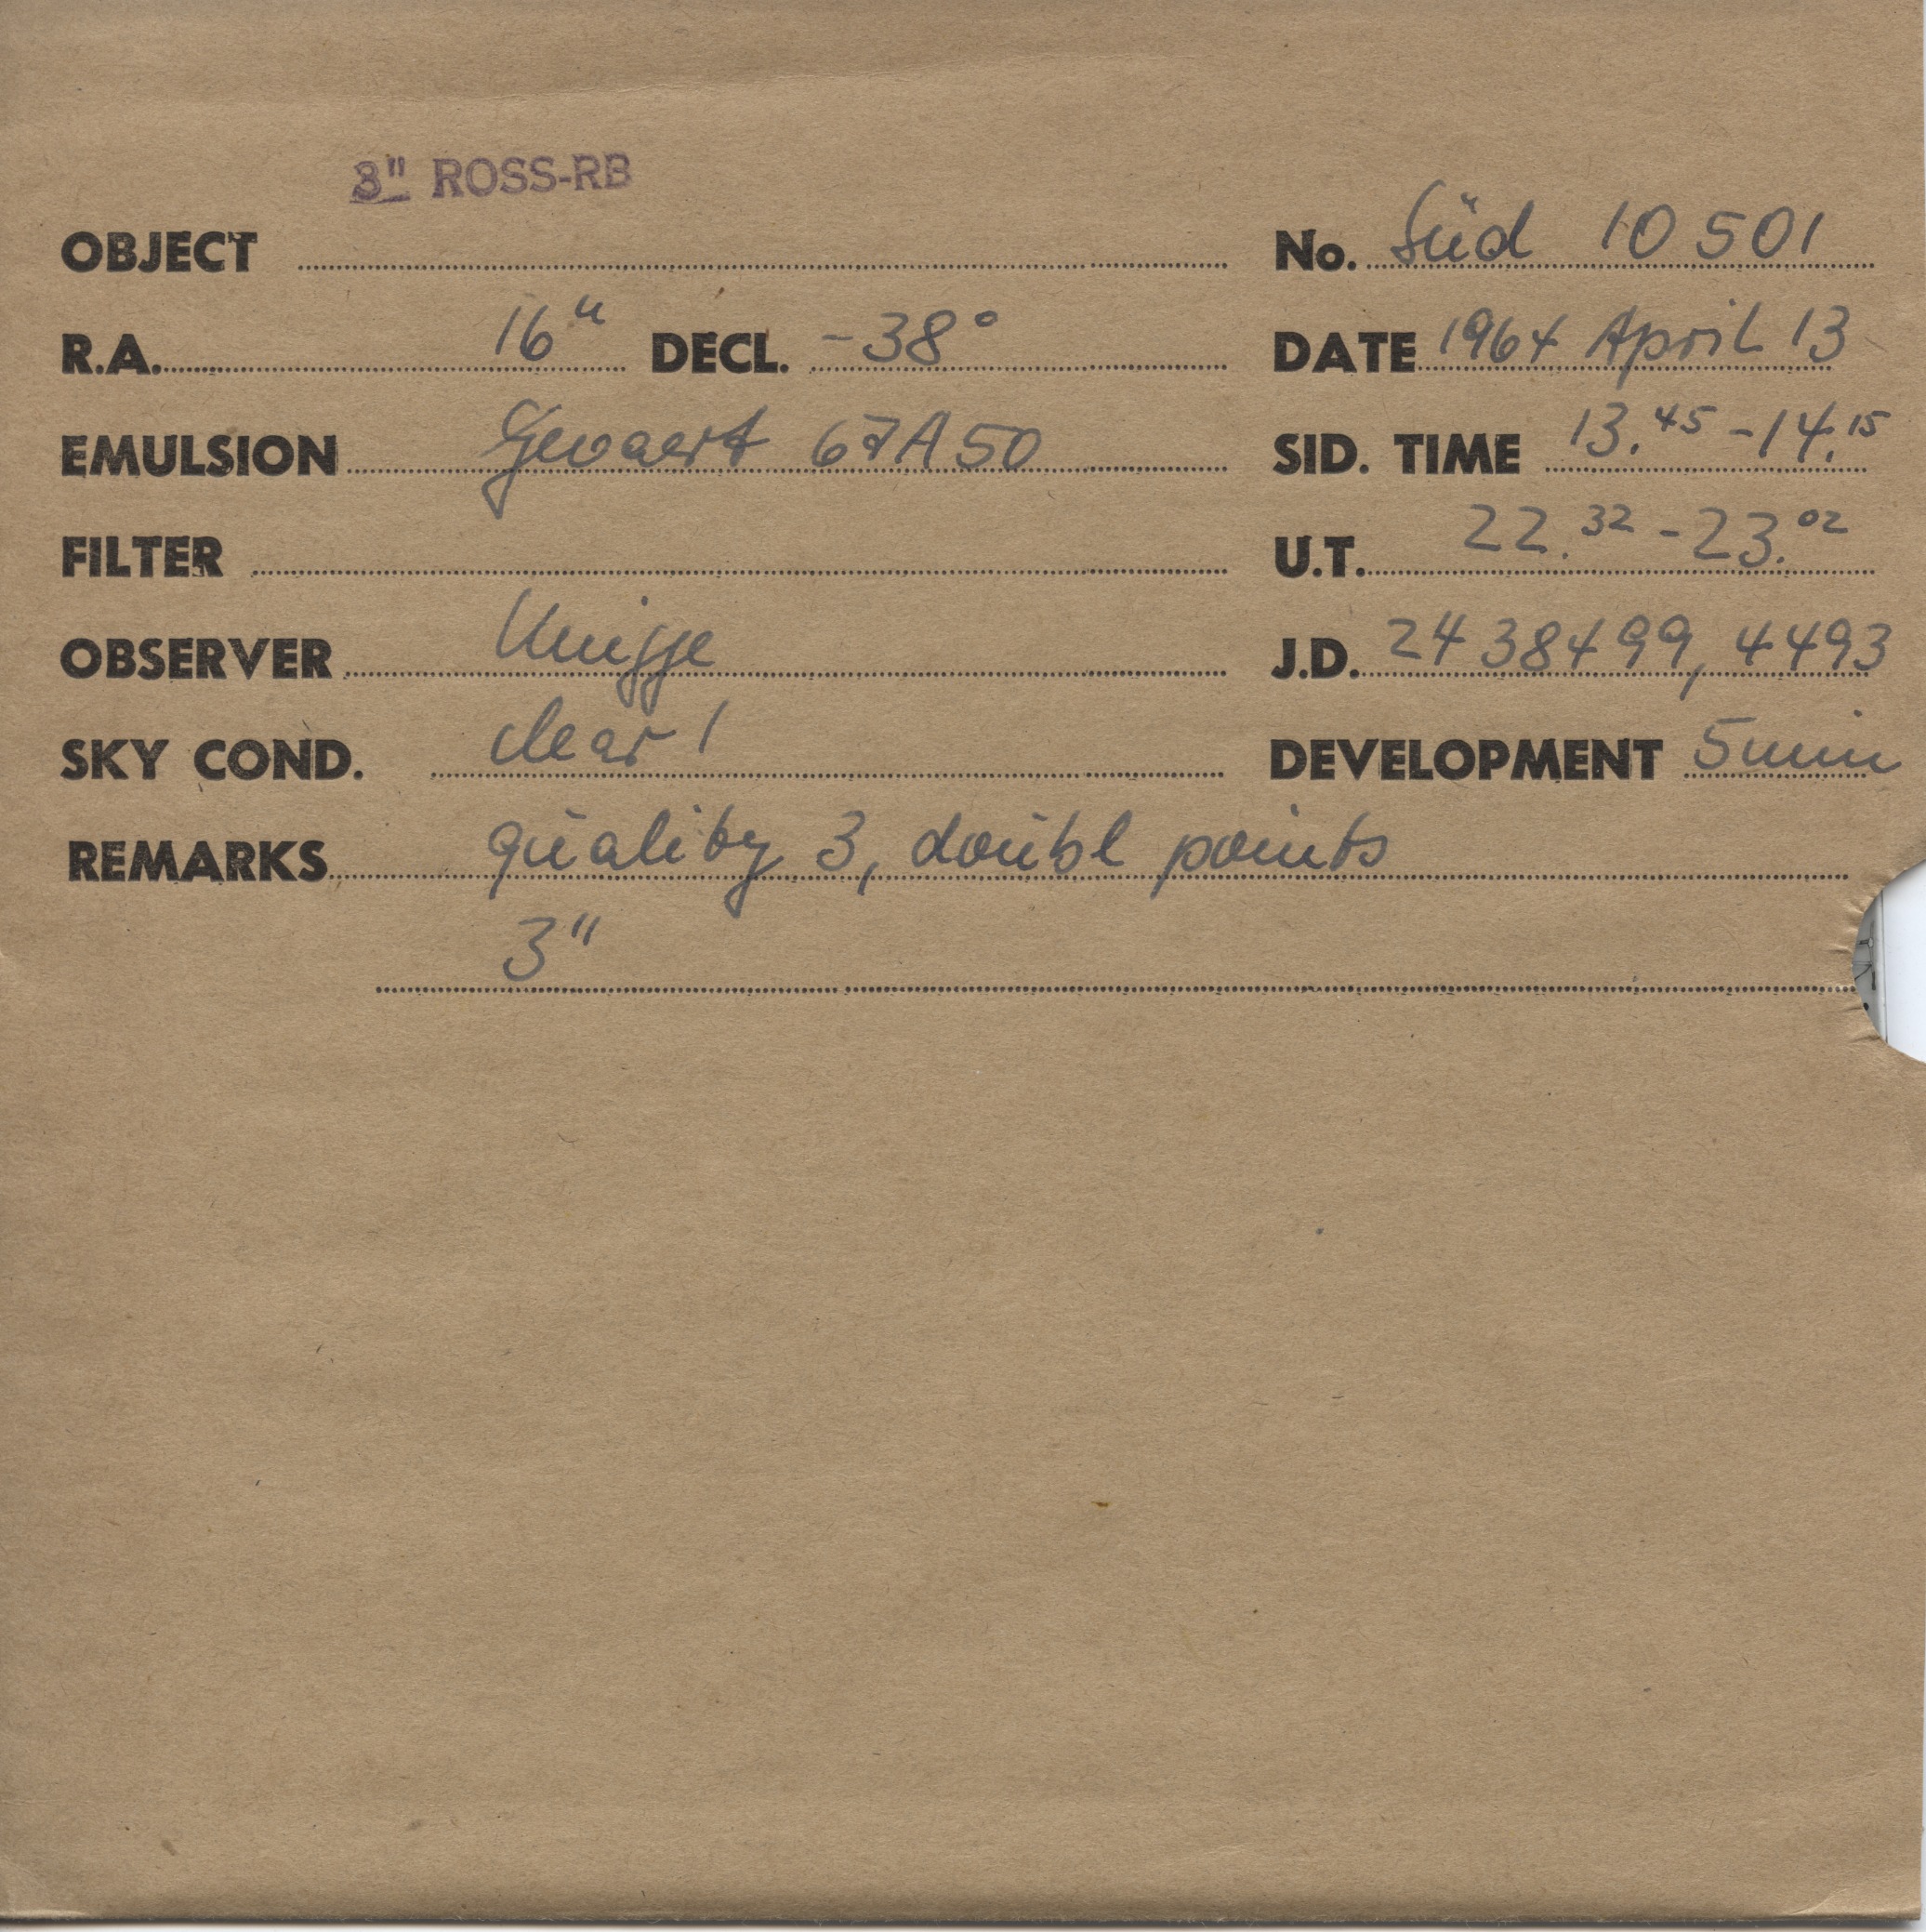 3" ROSS-RB
OBJECT No. Süd 10 501
R.A. 16h DECL. -38° DATE 1964 April 13
EMULSION Gevaert 67A50 SID. TIME 13.45 - 14.15
FILTER U.T. 22.32 - 23.02
OBSERVER Knigge J.D. 2438499,4493
SKY COND. clear! DEVELOPMENT 5 min
REMARKS quality 3, doubl points
3"